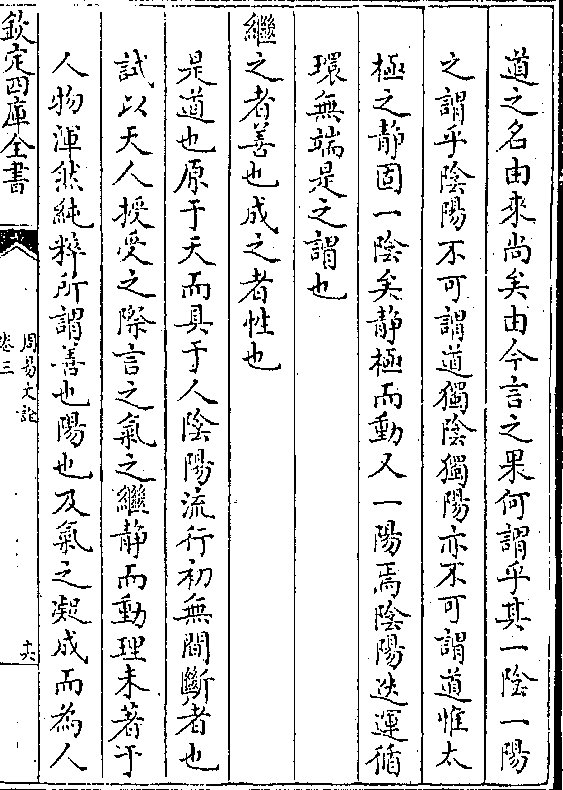 道之名由來尚矣由今言之果何謂乎其一陰一陽
之謂乎陰陽不可謂道獨陰獨陽亦不可謂道惟太
極之静固一陰矣静極而動又一陽焉陰陽迭運循
環無端是之謂也
繼之者善也成之者性也
是道也原于天而具于人陰陽流行初無間斷者也
試以天人授受之際言之氣之繼静而動理未著于
人物渾然純粹所謂善也陽也及氣之凝成而為人
欽定四庫全書
周易文詮
卷三
十六